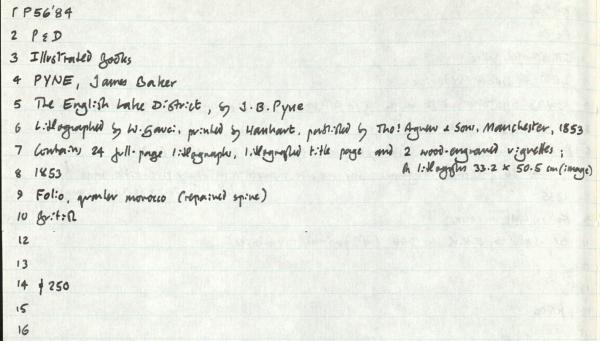 1 P56'84
2 P & D
3 Illustrated Books
4 PYNE, James Baker
5 The English Lake District, by J.B. Pyne
6 Lithographed by W. Gauci, printed by Hanhart, published by Thos. Agnew & Sons, Manchester, 1853
7 Contains 24 full-page lithographs, lithographed title page and 2 wood-engraved vignettes;
8 1853 lithographs 33.2 x 50.5 cm (image)
9 Folio, quarter morocco (repaired spine)
10 British
12
13
14 250
15
16